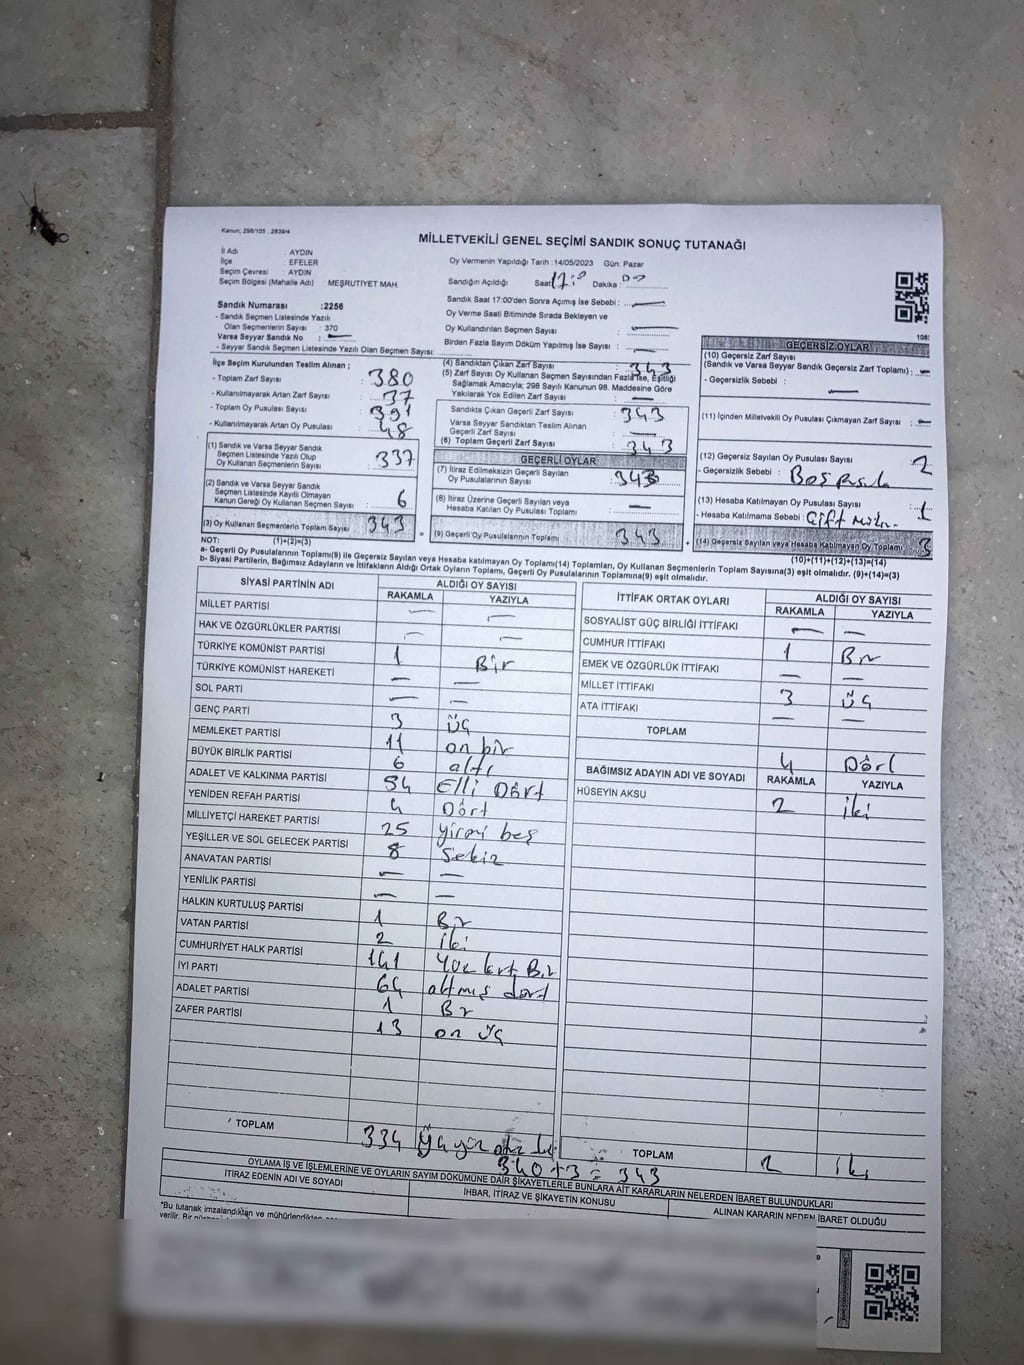 Kanun; 298/105 , 2839/4
MİLLETVEKİLİ GENEL SEÇİMİ SANDIK SONUÇ TUTANAĞI
İl Adı : AYDIN
İlçe : EFELER
Seçim Çevresi : AYDIN
Seçim Bölgesi (Mahalle Adı) : MEŞRUTİYET MAH.
Sandık Numarası :2256
- Sandık Seçmen Listesinde Yazılı
Olan Seçmenlerin Sayısı : 370
Varsa Seyyar Sandık No : —
- Seyyar Sandık Seçmen Listesinde Yazılı Olan Seçmen Sayısı:
Oy Vermenin Yapıldığı Tarih :14/05/2023 Gün: Pazar
Sandığın Açıldığı Saat Dakika :
Sandık Saat 17:00'den Sonra Açımış İse Sebebi : —
Oy Verme Saati Bitiminde Sırada Bekleyen ve
Oy Kullandırılan Seçmen Sayısı : —
Birden Fazla Sayım Döküm Yapılmış İse Sayısı : —
İlçe Seçim Kurulundan Teslim Alınan ;
- Toplam Zarf Sayısı : 380
- Kullanılmayarak Artan Zarf Sayısı : 37
- Toplam Oy Pusulası Sayısı : 391
- Kullanılmayarak Artan Oy Pusulası : 48
(1) Sandık ve Varsa Seyyar Sandık
Seçmen Listesinde Yazılı Olup
Oy Kullanan Seçmenlerin Sayısı : 337
(2) Sandık ve Varsa Seyyar Sandık
Seçmen Listesinde Kayıtlı Olmayan
Kanun Gereği Oy Kullanan Seçmen Sayısı : 6
(3) Oy Kullanan Seçmenlerin Toplam Sayısı : 343
(1)+(2)=(3)
(4) Sandıktan Çıkan Zarf Sayısı : 343
(5) Zarf Sayısı Oy Kullanan Seçmen Sayısından Fazla İse, Eşitliği
Sağlamak Amacıyla; 298 Sayılı Kanunun 98. Maddesine Göre
Yakılarak Yok Edilen Zarf Sayısı : —
Sandıkta Çıkan Geçerli Zarf Sayısı : 343
Varsa Seyyar Sandıktan Teslim Alınan
Geçerli Zarf Sayısı : —
(6) Toplam Geçerli Zarf Sayısı : 343
GEÇERLİ OYLAR
(7) İtiraz Edilmeksizin Geçerli Sayılan
Oy Pusulalarının Sayısı :
(8) İtiraz Üzerine Geçerli Sayılan veya
Hesaba Katılan Oy Pusulası Toplamı : —
= (9) Geçerli Oy Pusulalarının Toplamı : 343
GEÇERSİZ OYLAR
(10) Geçersiz Zarf Sayısı
(Sandık ve Varsa Seyyar Sandık Geçersiz Zarf Toplamı) : —
- Geçersizlik Sebebi : —
(11) İçinden Milletvekili Oy Pusulası Çıkmayan Zarf Sayısı : —
(12) Geçersiz Sayılan Oy Pusulası Sayısı : 2
- Geçersizlik Sebebi : Boş pusula
(13) Hesaba Katılmayan Oy Pusulası Sayısı : 1
- Hesaba Katılmama Sebebi : Çift
+ (14) Geçersiz Sayılan veya Hesaba Katılmayan Oy Toplamı : 3
(10)+(11)+(12)+(13)=(14)
NOT:
a- Geçerli Oy Pusulalarının Toplamı(9) ile Geçersiz Sayılan veya Hesaba katılmayan Oy Toplamı(14) Toplamları, Oy Kullanan Seçmenlerin Toplam Sayısına(3) eşit olmalıdır. (9)+(14)=(3)
b- Siyasi Partilerin, Bağımsız Adayların ve İttifakların Aldığı Ortak Oyların Toplamı, Geçerli Oy Pusulalarının Toplamına(9) eşit olmalıdır.
SİYASİ PARTİNİN ADI ALDIĞI OY SAYISI
RAKAMLA YAZIYLA
MİLLET PARTİSİ — —
HAK VE ÖZGÜRLÜKLER PARTİSİ — —
TÜRKİYE KOMÜNİST PARTİSİ 1 Bir
TÜRKİYE KOMÜNİST HAREKETİ — —
SOL PARTİ — —
GENÇ PARTİ 3 üç
MEMLEKET PARTİSİ 11 on bir
BÜYÜK BİRLİK PARTİSİ 6 altı
ADALET VE KALKINMA PARTİSİ 54 Elli Dört
YENİDEN REFAH PARTİSİ 4 Dört
MİLLİYETÇİ HAREKET PARTİSİ 25 yirmi beş
YEŞİLLER VE SOL GELECEK PARTİSİ 8 Sekiz
ANAVATAN PARTİSİ — —
YENİLİK PARTİSİ — —
HALKIN KURTULUŞ PARTİSİ 1 Bir
VATAN PARTİSİ 2 iki
CUMHURİYET HALK PARTİSİ 141 Yüz kırk Bir
İYİ PARTİ 64 altmış dört
ADALET PARTİSİ 1 Bir
ZAFER PARTİSİ 13 on üç
TOPLAM 334
İTTİFAK ORTAK OYLARI ALDIĞI OY SAYISI
RAKAMLA YAZIYLA
SOSYALİST GÜÇ BİRLİĞİ İTTİFAKI — —
CUMHUR İTTİFAKI 1 Bir
EMEK VE ÖZGÜRLÜK İTTİFAKI — —
MİLLET İTTİFAKI 3 üç
ATA İTTİFAKI — —
TOPLAM 4 Dört
BAĞIMSIZ ADAYIN ADI VE SOYADI RAKAMLA YAZIYLA
HÜSEYİN AKSU 2 iki
TOPLAM 2 iki
340+3=343
OYLAMA İŞ VE İŞLEMLERİNE VE OYLARIN SAYIM DÖKÜMÜNE DAİR ŞİKAYETLERLE BUNLARA AİT KARARLARIN NELERDEN İBARET BULUNDUKLARI
İTİRAZ EDENİN ADI VE SOYADI İHBAR, İTİRAZ VE ŞİKAYETİN KONUSU ALINAN KARARIN NEDEN İBARET OLDUĞU
"Bu tutanak imzalandıktan ve mühürlendikten